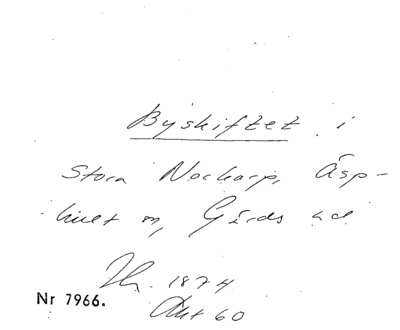 Byskiftet i
Stora Nockarp, Äsp-
hult m, Gärds hd
1874
Nr 7966.
Akt 60